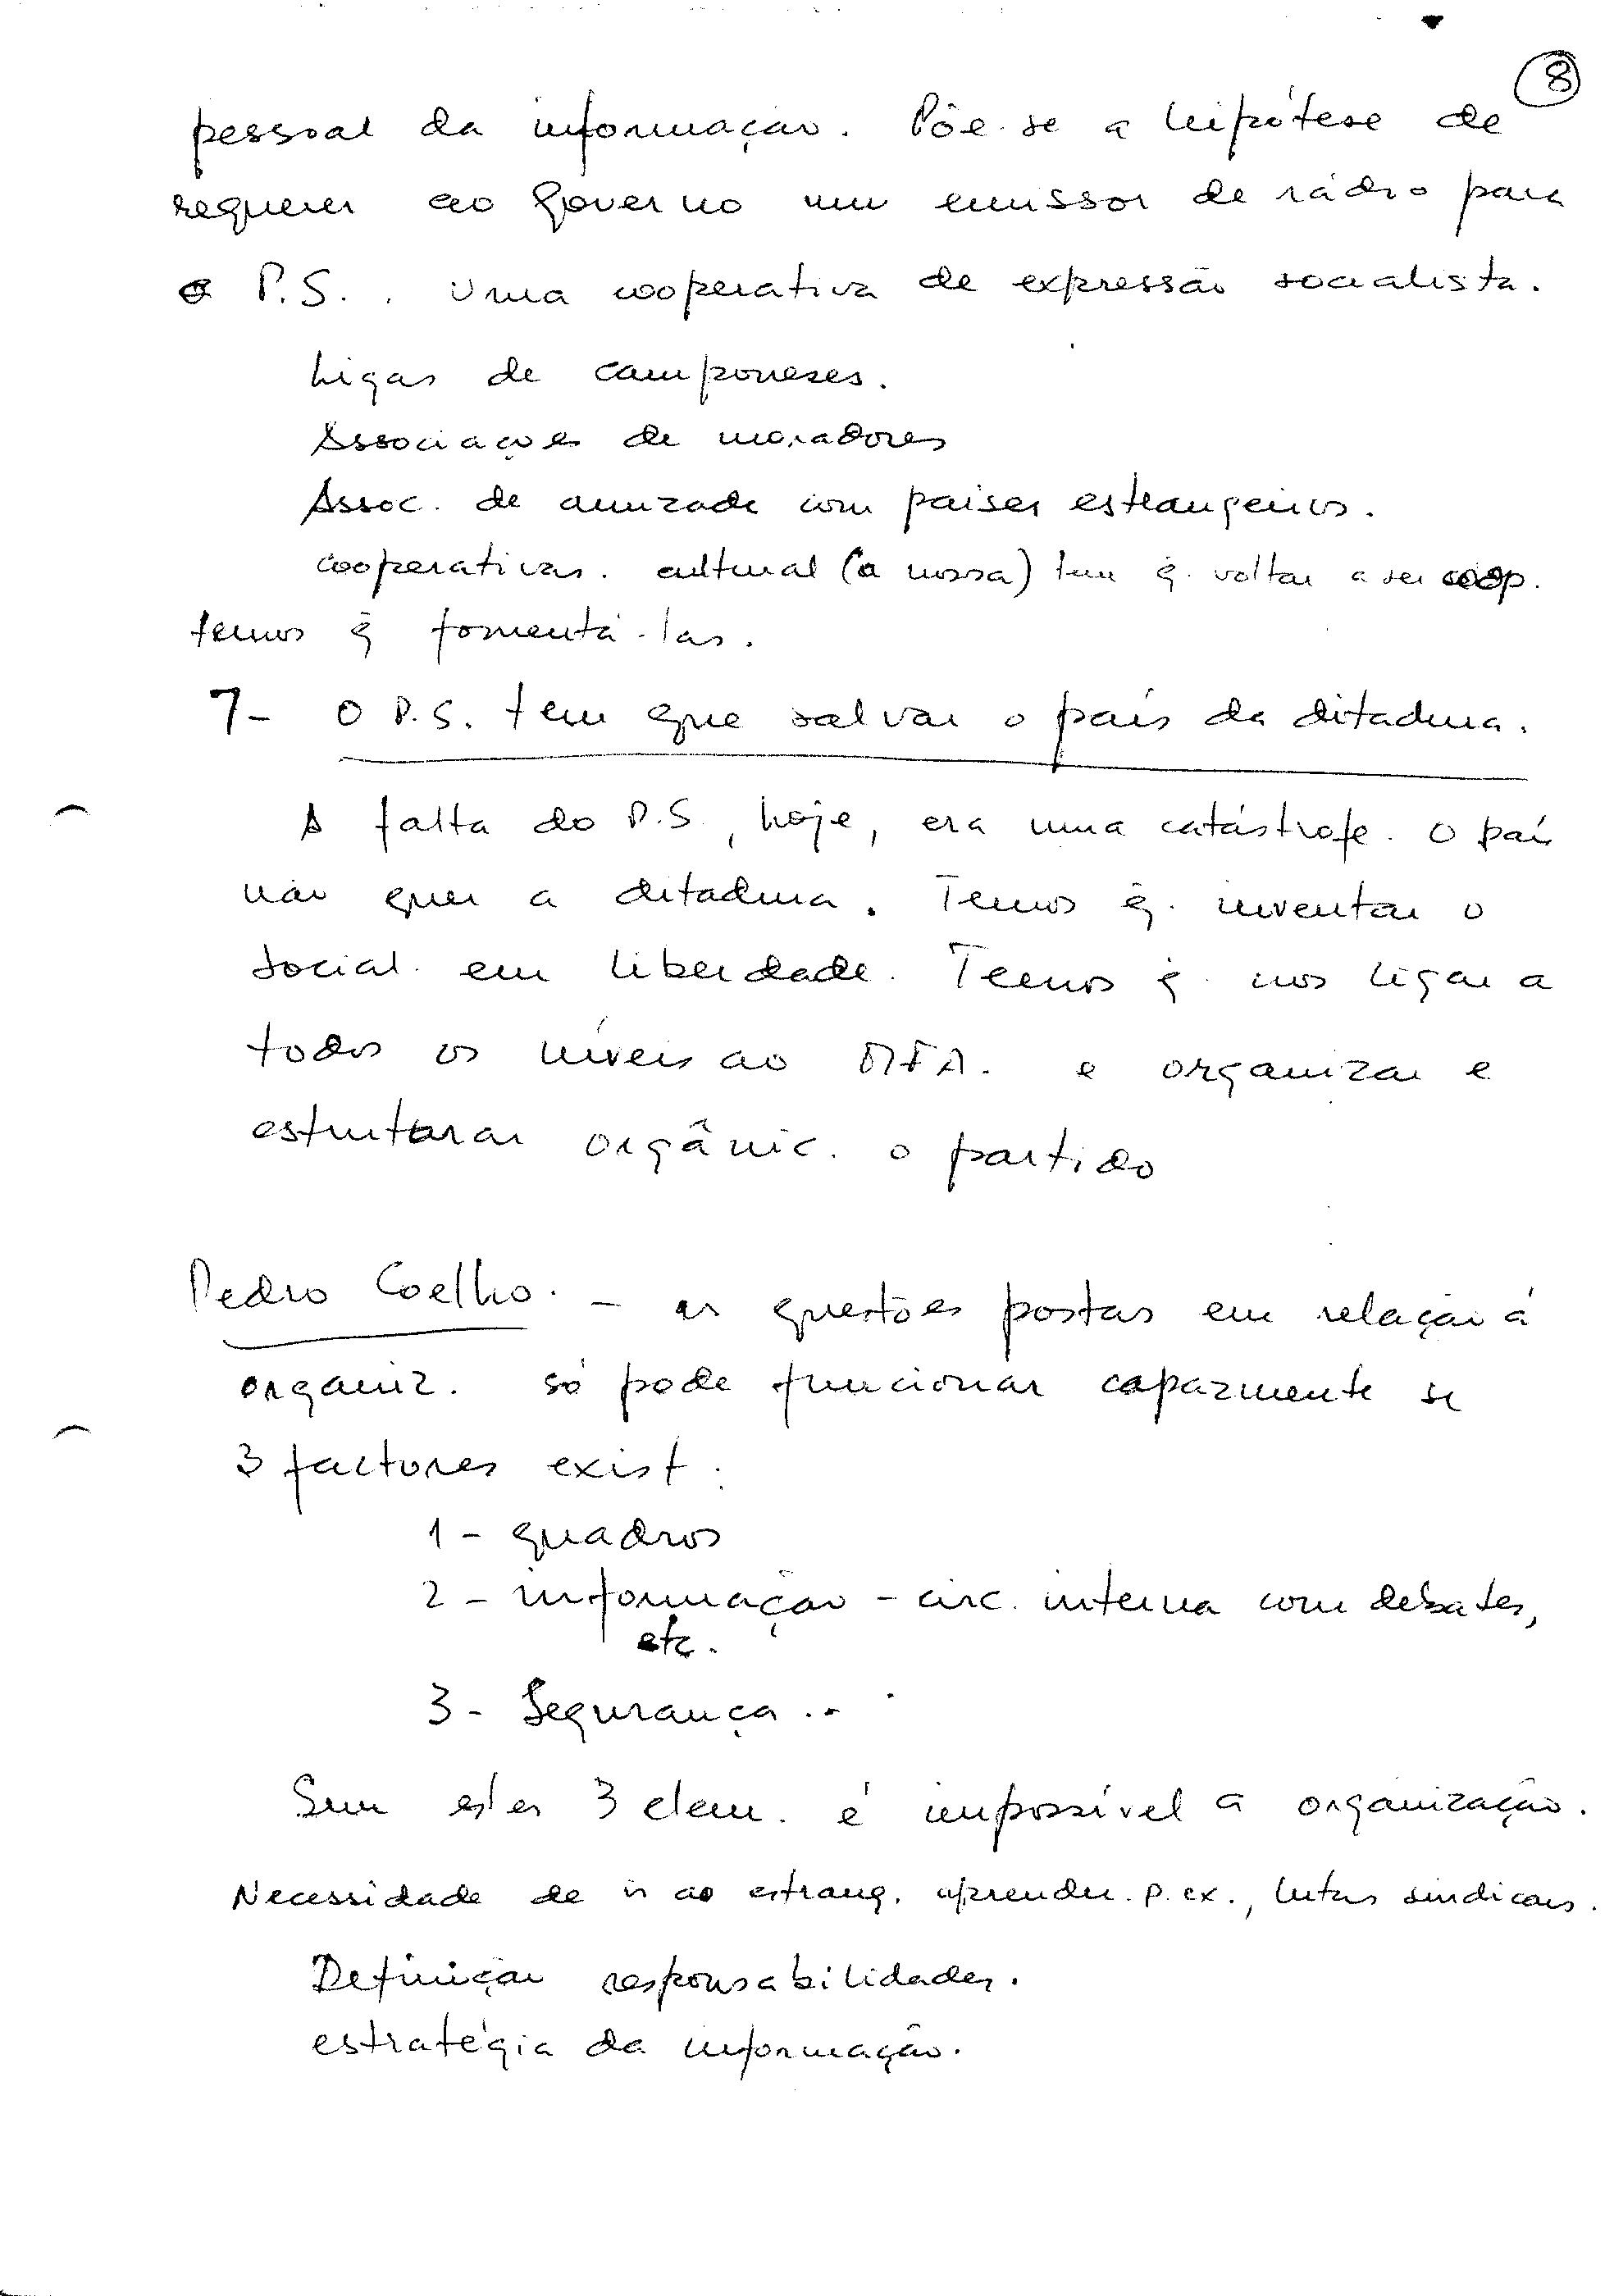 8
pessoal da informação. Põe-se a hipótese de
requerer ao Governo um emissor de rádio para
o P.S.. Uma cooperativa de expressão socialista.
Ligas de camponeses.
Associações de moradores
Assoc. de amizade com países estrangeiros.
Cooperativas. cultural (a nossa) tem q. voltar a ser coop.
temos q fomentá-las.
7- O P.S. tem que salvar o país da ditadura.
A falta do P.S., hoje, era uma catástrofe. O país
não quer a ditadura. Temos q. inventar o
social. em liberdade. Temos q. nos ligar a
todos os níveis ao MFA. e organizar e
estruturar orgânic. o partido
Pedro Coelho. - as questões postas em relação à
organiz. só pode funcionar capazmente se
3 factores exist:
1 - quadros
2 - informação - circ. interna com debates,
etc.
3 - Segurança..
Sem estes 3 elem. é impossível a organização.
Necessidade de ir ao estrang. aprender. p. ex., lutas sindicais.
Definição responsabilidades.
estratégia da informação.